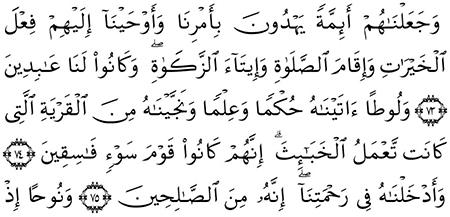 وَجَعَلْنَـٰهُمْ أَئِمَّةً يَهْدُونَ بِأَمْرِنَا وَأَوْحَيْنَآ إِلَيْهِمْ فِعْلَ
ٱلْخَيْرَٰتِ وَإِقَامَ ٱلصَّلَوٰةِ وَإِيتَآءَ ٱلزَّكَوٰةِ ۖ وَكَانُوا۟ لَنَا عَـٰبِدِينَ
﴿٧٣﴾ وَلُوطًا ءَاتَيْنَـٰهُ حُكْمًا وَعِلْمًا وَنَجَّيْنَـٰهُ مِنَ ٱلْقَرْيَةِ ٱلَّتِى
كَانَت تَّعْمَلُ ٱلْخَبَـٰٓئِثَ ۗ إِنَّهُمْ كَانُوا۟ قَوْمَ سَوْءٍ فَـٰسِقِينَ ﴿٧٤﴾
وَأَدْخَلْنَـٰهُ فِى رَحْمَتِنَآ ۖ إِنَّهُۥ مِنَ ٱلصَّـٰلِحِينَ ﴿٧٥﴾ وَنُوحًا إِذْ